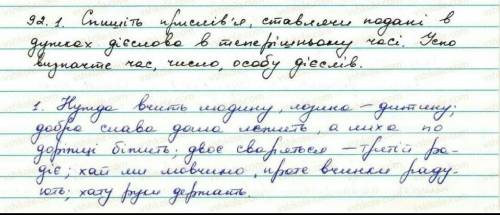 92.1. Спишіть прислів'я, ставлячи подані в
дужках дієслова в теперішньому часі. Усно
визначте час, число, особу дієслів.
1. Нужда вчить людину, лозина – дитину;
добра слава дома лежить, а лиха по
доріжці біжить; двоє сваряться – третій ра-
діє; хай ми мовчимо, проте вчинки раду-
ють; хату руки держать.